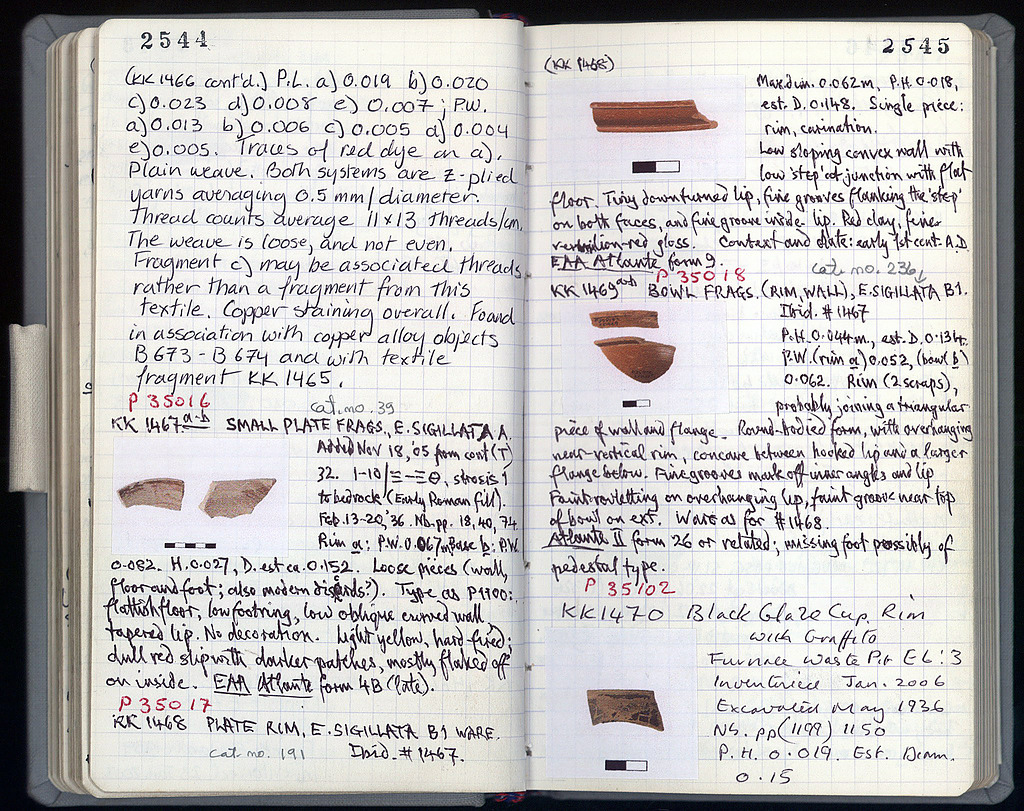 2544
(KK 1466 cont'd.) P.L. a) 0.019 b) 0.020
c) 0.023 d) 0.008 e) 0.007; P.W.
a) 0.013 b) 0.006 c) 0.005 d) 0.004
e) 0.005. Traces of red dye on a).
Plain weave. Both systems are z-plied
yarns averaging 0.5 mm/diameter.
Thread counts average 11x13 threads/cm.
The weave is loose, and not even.
Fragment c) may be associated threads
rather than a fragment from this
textile. Copper staining overall. Found
in association with copper alloy objects
B 673 - B 674 and with textile
fragment KK 1465.
P 35016
cat. no. 39
KK 1467 a-b SMALL PLATE FRAGS., E. SIGILLATA A.
Added Nov 18, '05 from cont (T)
32. 1-10/
to bedrock (Early Roman fill).
Feb. 13-20, '36. Nb. pp. 18, 40, 74.
Rim a: P.W. 0.067m Base b: P.W.
0.082. H. 0.027, D. est ca. 0.152. Loose pieces (wall,
floor and foot; also modern discards?). Type as P1900:
flattish floor, low footring, low oblique curved wall,
tapered lip. No decoration. Light yellow, hard-fired;
dull red slip with darker patches, mostly flaked off
on inside. EAA Atlante form 4B (late).
P 35017
KK 1468 PLATE RIM, E. SIGILLATA B1 WARE.
cat. no. 191 Ibid. # 1467.
2545
(KK 1468)
Max. dim. 0.062m, P.H. 0.018,
est. D. 0.148. Single piece:
rim, carination.
Low sloping convex wall with
low 'step' at junction with flat
floor. Tiny downturned lip, fine grooves flanking the 'step'
on both faces, and fine groove inside lip. Red clay, finer
vermilion-red gloss. Context and date: early 1st cent. A.D.
EAA Atlante form 9.
P 35018
cat. no. 236
KK 1469 a+b BOWL FRAGS. (RIM, WALL), E. SIGILLATA B1.
Ibid. # 1467
P.H. 0.044m, est. D. 0.134.
P.W. (rim a) 0.052, (bowl b)
0.062. Rim (2 scraps),
probably joining a triangular
piece of wall and flange. Round-bodied form, with overhanging
near-vertical rim, concave between hooked lip and a larger
flange below. Fine grooves mark off inner angles and lip
Faint rouletting on overhanging lip, faint groove near top
of bowl on ext. Ware as for # 1468.
Atlante II form 26 or related; missing foot possibly of
pedestal type.
P 35102
KK1470 Black Glaze Cup Rim
with Graffito
Furnace Waste Pit E6:3
Inventoried Jan. 2006
Excavated May 1936
Nb. pp (1199) 1150
P.H. 0.019. Est. Diam.
0.15